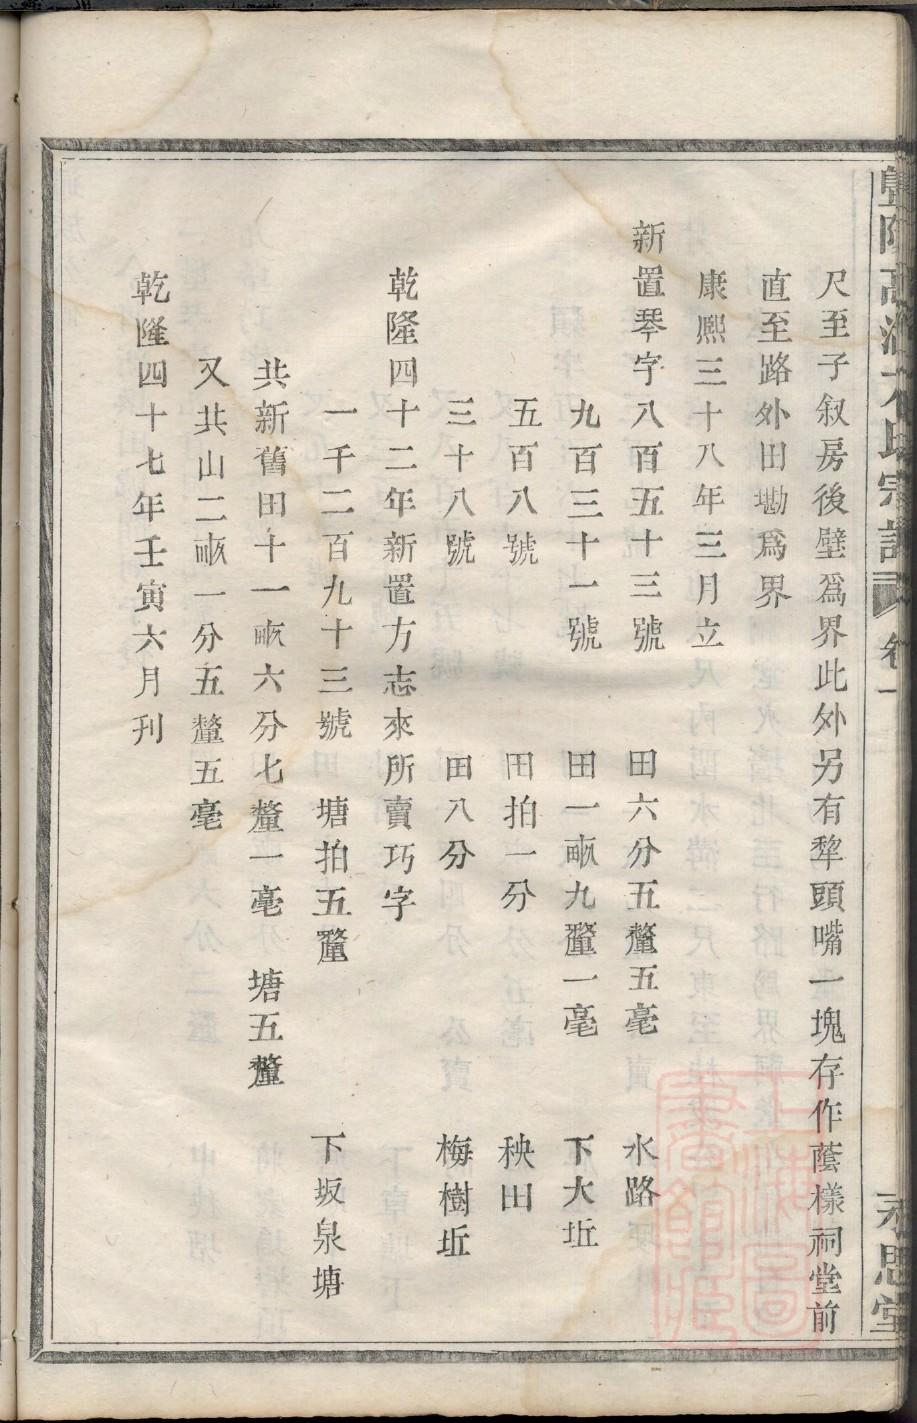 尺至子叙房後壁爲界此外另有犂頭嘴一塊存作蔭樣祠堂前
直至路外田磡爲界
康熙三十八年三月立
新置琴字八百五十三號 田六分五釐五毫 水路
九百三十一號 田一畝九釐一毫 下大坵
五百八號 田拍一分 秧田
三十八號 田八分 梅樹坵
乾隆四十二年新置方志來所賣巧字
一千二百九十三號 塘拍五釐 下坂泉塘
共新舊田十一畝六分七釐一毫 塘五釐
又共山二畝一分五釐五毫
乾隆四十七年壬寅六月刊
宗譜 卷一 永思堂